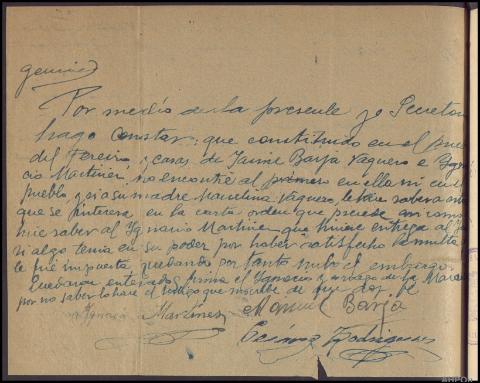 Por medio de la presente yo Secretar
hago constar: que constituido en el pue
del Pereiro y casas de Jaime Barja Vaquero e Igna
cio Martinez, no encontré al primero en ella ni en el
pueblo, y si a su madre Marcelina Vaquero, le hice saber a
que se interesa en la carta orden que precede asi como
hice saber al Ignacio Martinez que hiciese entrega al
si algo tenia en su poder por haber satisfecho la multa
le fue impuesta quedando por tanto nulo el embargo.
Quedaron enterados firma el Ignacio y no haciendo la Marce
por no saber lo hace el testigo que suscribe de que doy fe
Ignacio Martinez Manuel Barja
Rodriguez
AHPOR